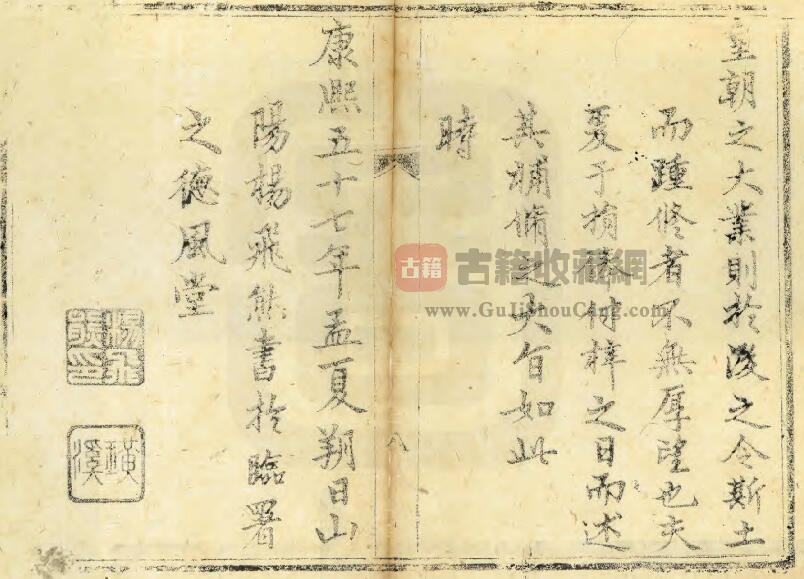 皇朝之大業則於後之令斯土
而踵修者不無厚望也夫
爰于捐俸付梓之日而述
其補脩之大旨如此
時
康熙五十七年孟夏朔日山
陽楊飛熊書於臨署
之德風堂
八
楊飛熊印
璜溪
古籍
古籍收藏網
www.GuJiShouCang.com